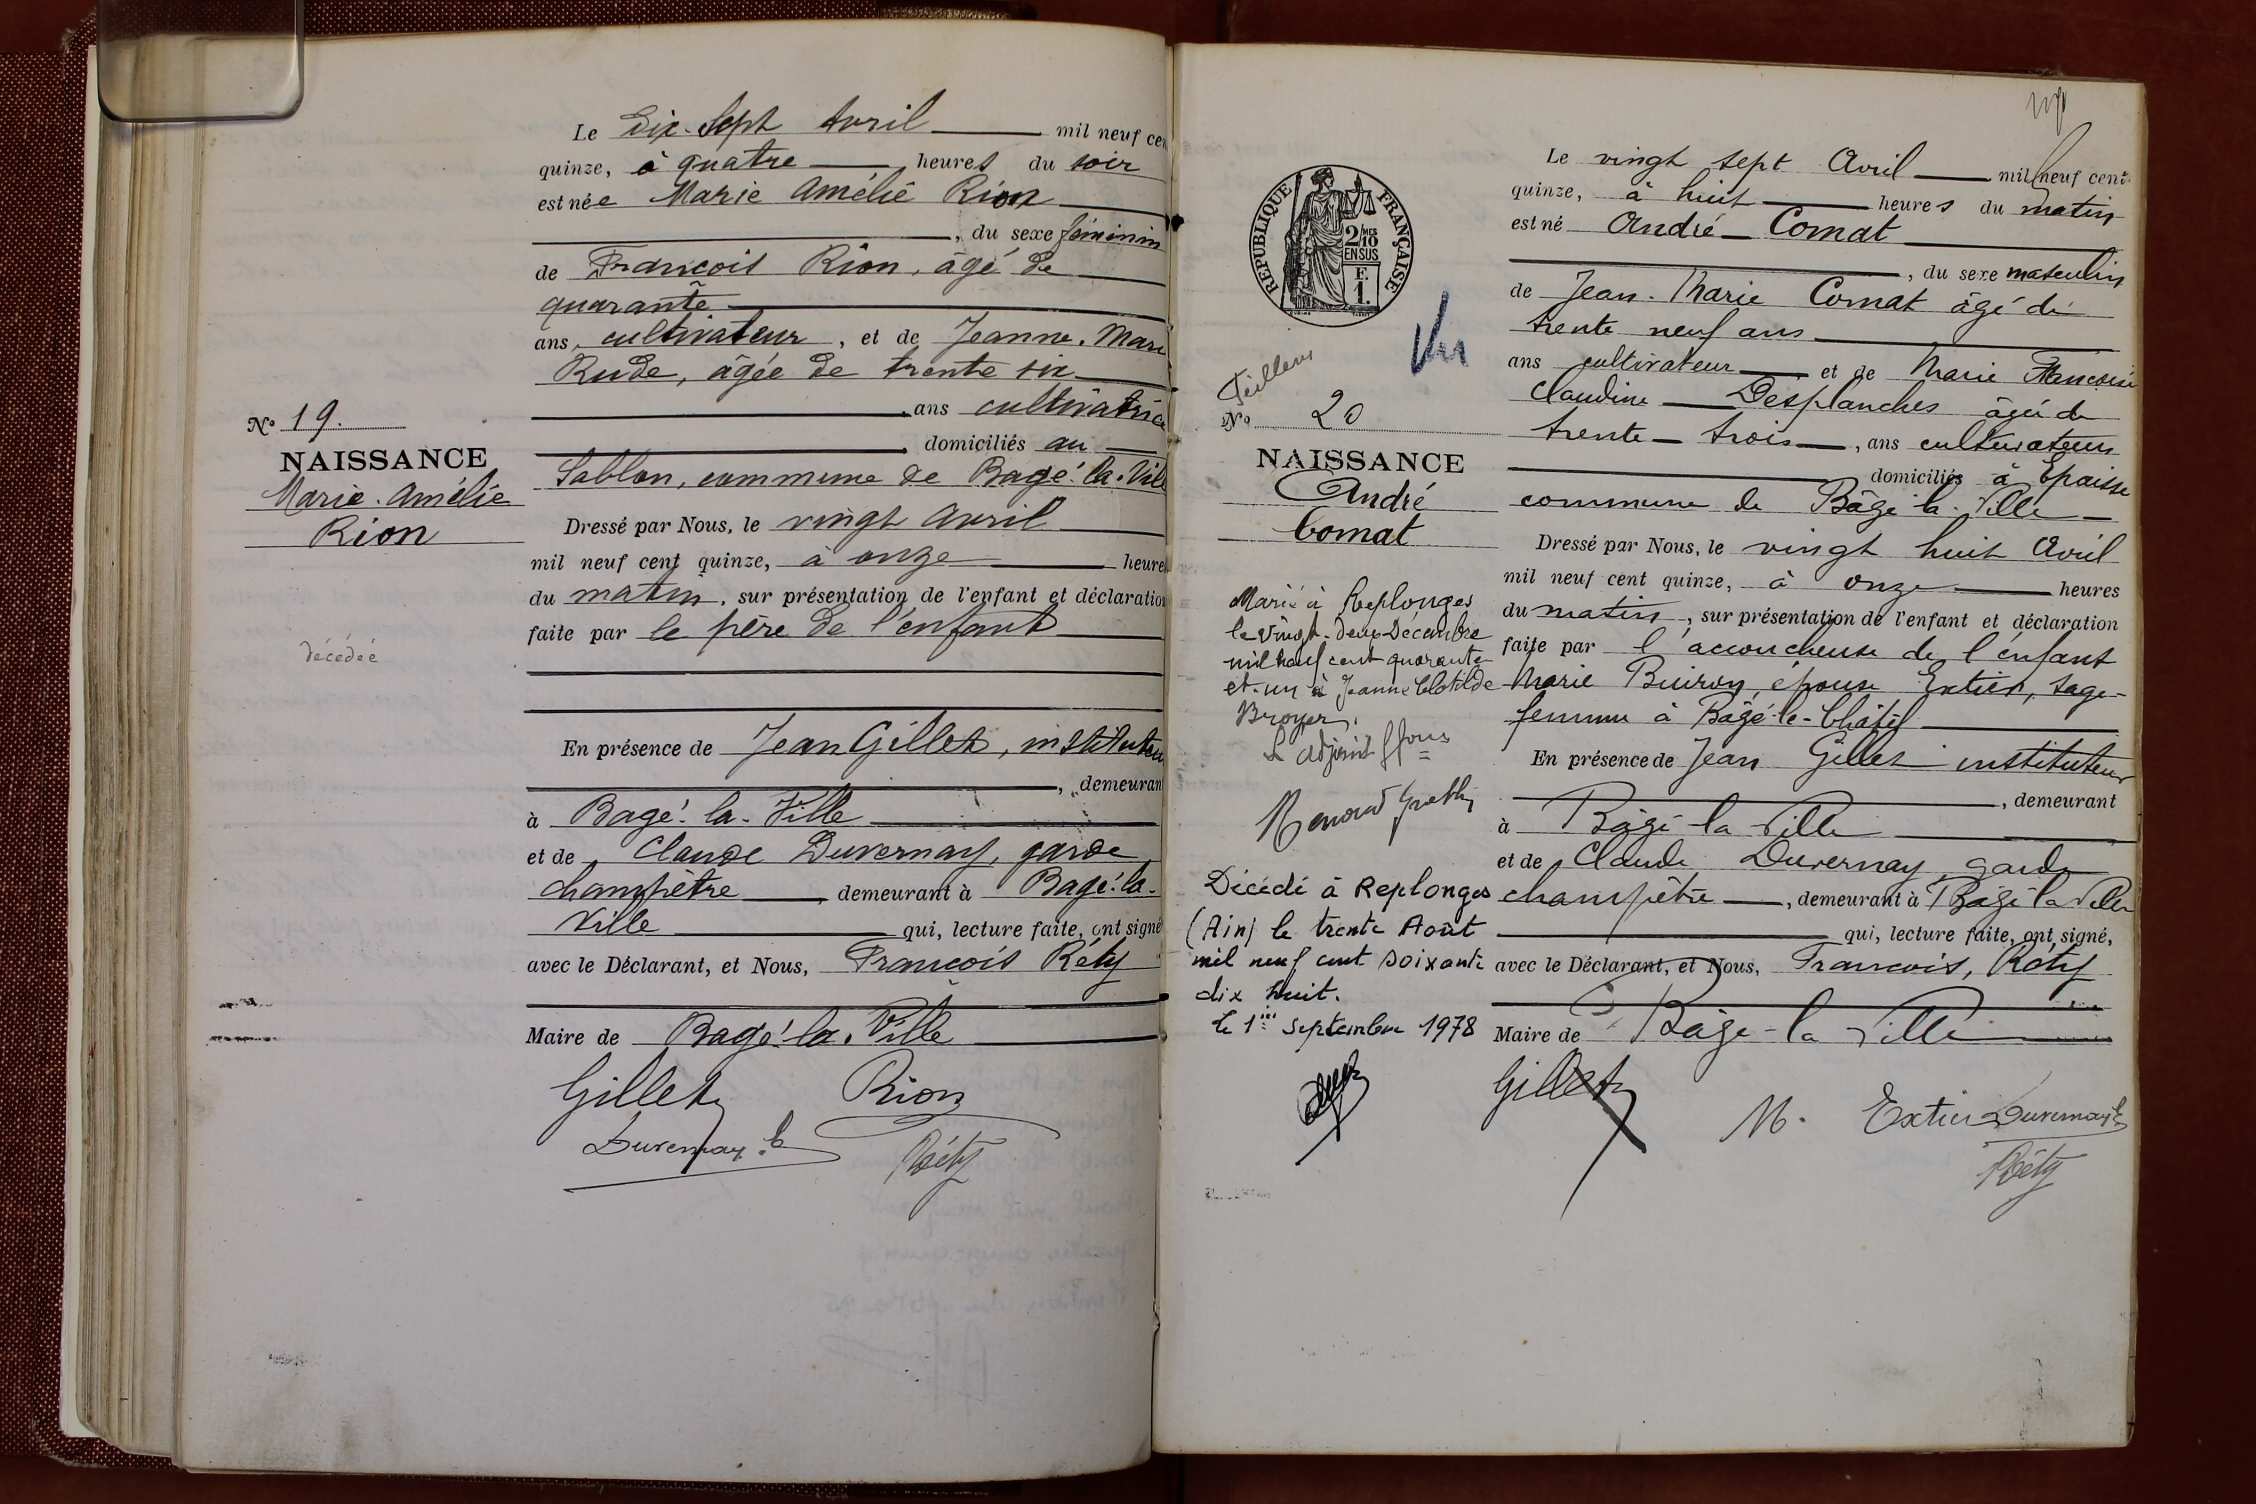 Le Dix-Sept Avril mil neuf cen
quinze, à quatre heures du soir
est née Marie Amélie Rion
, du sexe féminin
de François Rion, âgé de
quarante
ans, cultivateur, et de Jeanne. Mari
Rude, âgée de trente six
ans cultivatrice
domiciliés au
Sablon, commune de Bagé-la-Vill
Dressé par Nous, le vingt Avril
mil neuf cent quinze, à onze heures
du matin, sur présentation de l'enfant et déclaration
faite par le père de l'enfant
En présence de Jean Gillet, instituteu
, demeuran
à Bagé-la-Ville
et de Claude Duvernay, garde
champêtre, demeurant à Bagé-la-
Ville qui, lecture faite, ont signé
avec le Déclarant, et Nous, François Réty
Maire de Bagé-la-Ville
Gillet Rion
Duvernay C Réty
No 19.
NAISSANCE
Marie-Amélie
Rion
décédée
REPUBLIQUE FRANÇAISE
2/10 MES
EN SUS
F.
1.
Vu
Feillens
No 20
NAISSANCE
André
Comat
Marié à Replonges
le vingt-deux Décembre
mil neuf cent quarante
et-un à Jeanne Clotilde
Broyer.
L'adjoint ffons
Décédé à Replonges
(Ain) le trente Août
mil neuf cent soixante
dix huit.
Le 1er septembre 1978
Le vingt sept Avril mil neuf cent
quinze, à huit heures du matin
est né André Comat
, du sexe masculin
de Jean-Marie Comat âgé de
trente neuf ans
ans cultivateur et de Marie Françoise
Claudine Desplanches âgée de
trente-trois, ans cultivateurs
domiciliés à Epaisse
commune de Bâgé-la-Ville
Dressé par Nous, le vingt huit Avril
mil neuf cent quinze, à onze heures
du matin, sur présentation de l'enfant et déclaration
faite par l'accoucheuse de l'enfant
Marie Buiron, épouse Extier, sage-
femme à Bâgé-le-Châtel
En présence de Jean Gillet instituteur
, demeurant
à Bâgé-la-Ville
et de Claude Duvernay, garde
champêtre, demeurant à Bâgé la Ville
qui, lecture faite, ont signé,
avec le Déclarant, et Nous, François, Réty
Maire de Bâgé-la-Ville
Gillet M. Extier Duvernay C
Réty